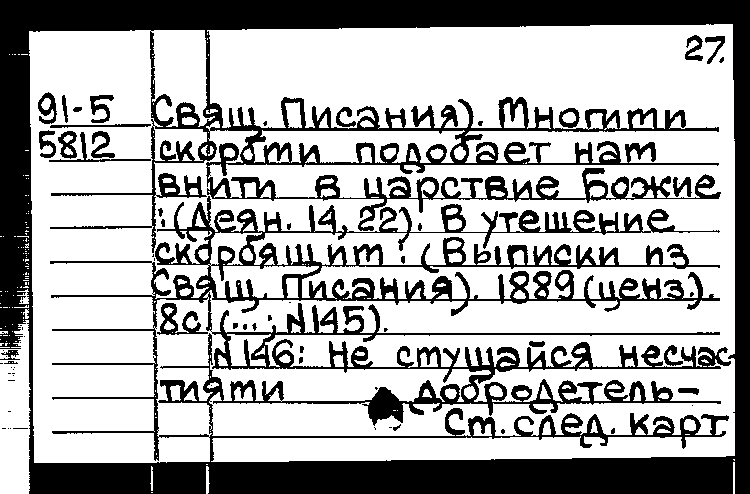 27.
91-5 Свящ. Писания). Многими
5812 скорбми подобает нам
внити в царствие Божие
: (Деян. 14, 22). В утешение
скорбящим : (Выписки из
Свящ. Писания). 1889 (ценз.).
8с. (...; N145).
N146: Не смущайся несчас-
тиями добродетель-
См. след. карт.